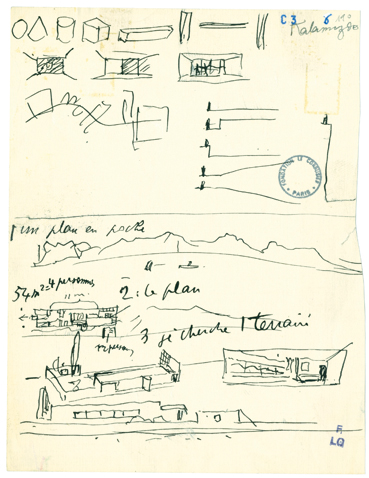 C3 6
Kalamazoo
FONDATION LE CORBUSIER
PARIS
1 un plan en poche
54m²=4 personnes
2: le plan
3 je cherche 1 terrain
F
LQ